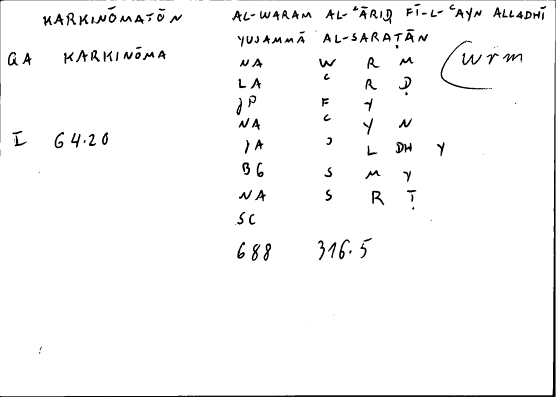 KARKINŌMATŌN AL-WARAM AL-ʿĀRIḌ FĪ-L-ʿAYN ALLADHĪ
YUSAMMĀ AL-SARAṬĀN
QA KARKINŌMA NA W R M (wrm
LA ʿ R Ḍ
JP F Y
NA ʿ Y N
I 64.20 JA ʾ L DH Y
BG S M Y
NA S R Ṭ
SC
688 316.5